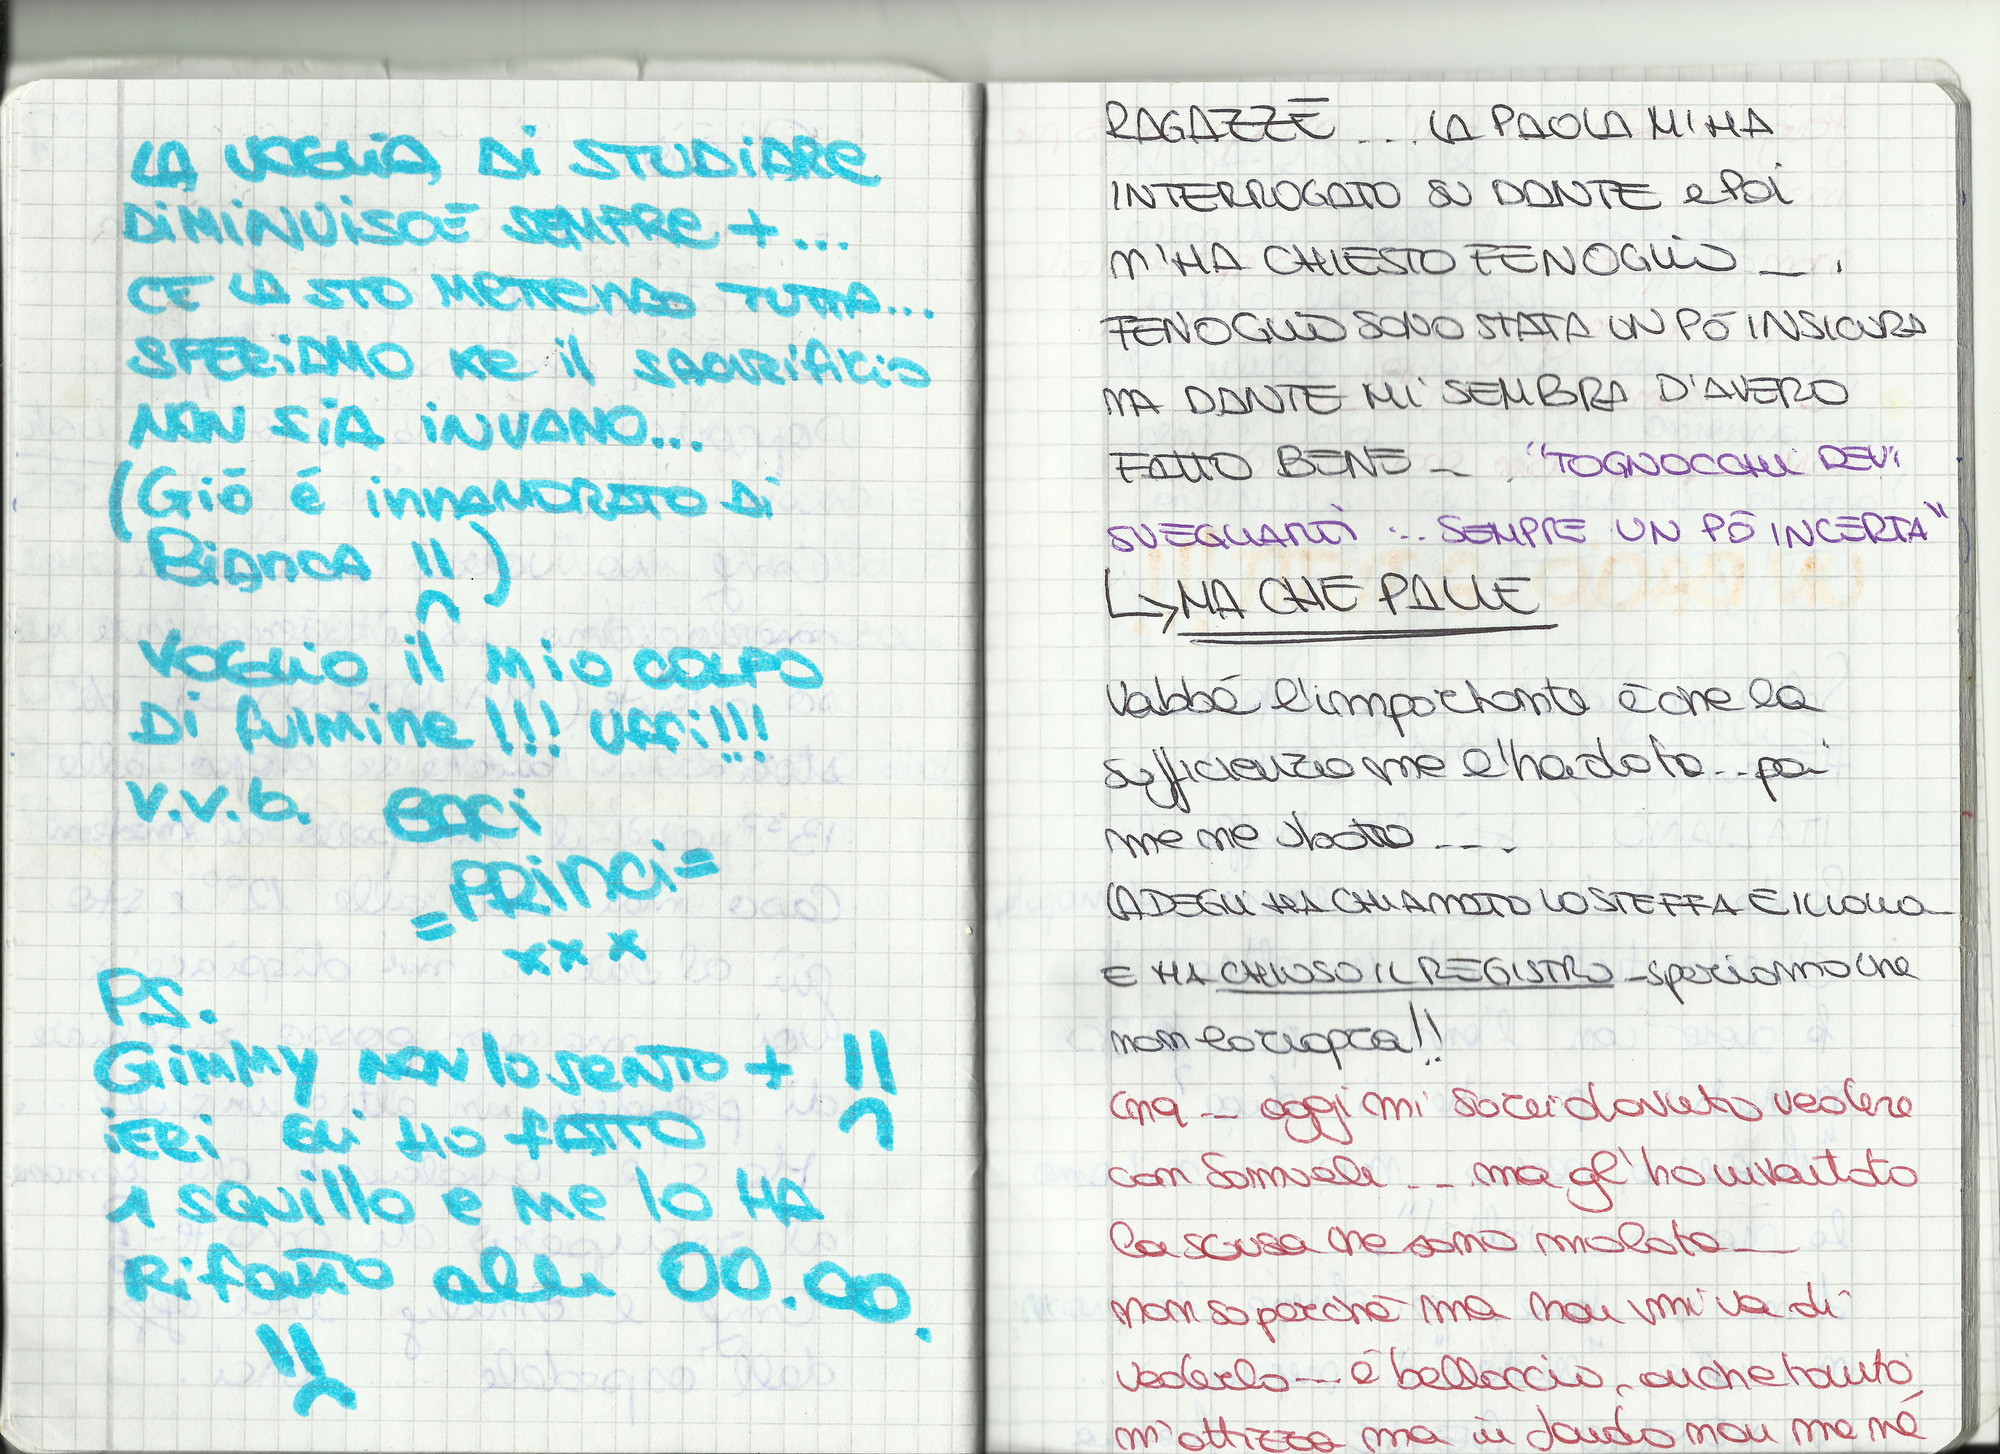 LA VOGLIA DI STUDIARE
DIMINUISCE SEMPRE + ...
CE LA STO METTENDO TUTTA...
SPERIAMO KE il SACRIFICIO
NON SIA INVANO...
(Giò é innAMORATO DI
Bianca !!)
VOGLIO il MIO COLPO
DI fulmine!!! UFFi!!!
V.V.B. BACI
=PRINCI=
xxx
PS.
GiMMy NON lo SENTO + !!
iERi GLi HO fATTO
1 SQUillo E ME lo HA
RifATTO alle 00.00.
RAGAZZE ... LA PAOLA MI HA
INTERROGATO SU DANTE e Poi
M'HA CHIESTO FENOGLIO _ .
FENOGLIO SONO STATA UN PÒ INSICURA
MA DANTE MI SEMBRA D'AVERO
FATTO BENE _ . "TOGNOCCHI DEVI
SVEGLIARTI ... SEMPRE UN PÒ INCERTA"
↳ MA CHE PALLE
Vabbé l'importante è che la
sufficienza me l'ha data... poi
me ne sbatto ....
LA DEGLI HA CHIAMATO LO STEFFA E
E HA CHIUSO IL REGISTRO _ speriamo che
non lo riapra!!
cmq _ oggi mi sarei dovuto vedere
con Samuele __ ma gl'ho inventato
la scusa che sono malata __
non so perchè ma non mi va di
vederlo __ è bellaccio, anche tanto,
m'attizza ma in fondo non me né